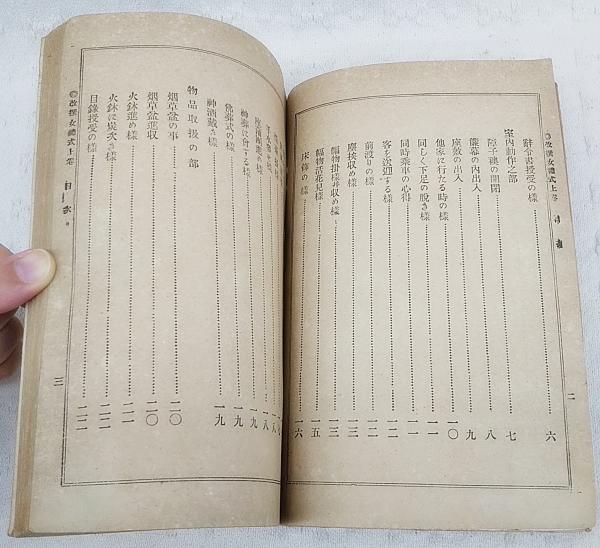 改撰女禮式上卷
辭令書授受の樣 六
室內動作之部
障子襖の開閉 七
簾幕の內出入 八
座敷の出入 九
他家に行たる時の樣 一〇
同しく下足の脫き樣 一一
同時乘車の心得 一一
客を送迎する樣 一二
前渡りの樣 一二
塵挨收め樣 一三
幅物掛樣幷收め樣 一三
幅物活花見樣 一五
床飾の樣 一六
神葬に會する樣 一九
佛葬式の樣 一九
神酒戴き樣 一九
物品取扱の部
烟草盆の事 二〇
烟草盆進め收 二〇
火鉢進め樣 二一
火鉢に炭次き樣 二一
目錄授受の樣 二二
改撰女禮式上卷 目次
二
三